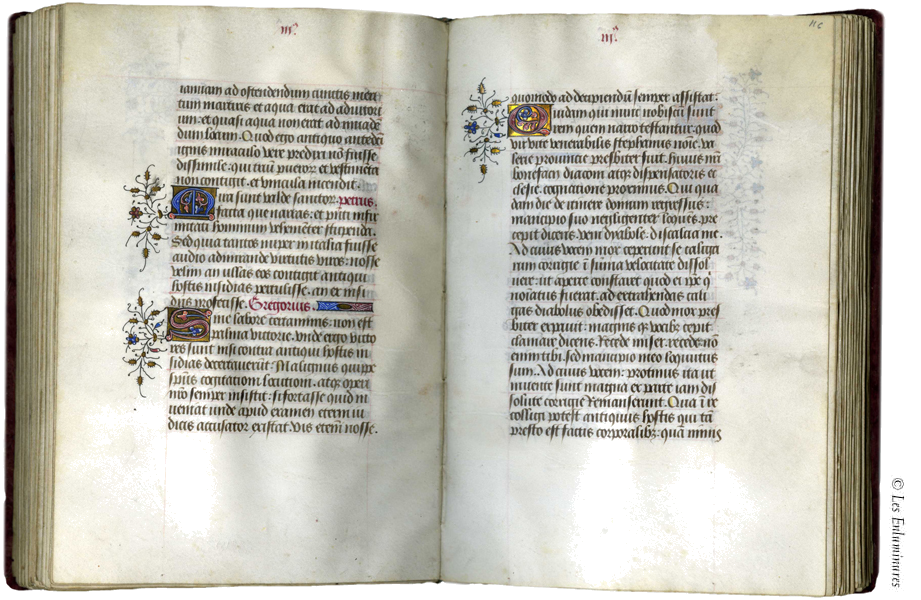 .iii.
iamiam ad ostendendum cunctis meri
tum martiris et aqua erat ad adiutori
um: et quasi aqua non erat ad invade
dum locum. Quod ergo antiquo antecedē
tis ignis miraculo vere perdixi nō fuisse
dissimile. qui trium pueror et vestimēta
non contigit. et vincula incendit.
Mira sunt valde sanctor Petrus.
facta que narras: et p̄nti infir
mitati hominum vehemēter stupenda.
Sed quia tantos nuper in italia fuisse
audio admirande virtutis viros: nosse
velim an ullas eos contigit antiqui
hostis insidias pertulisse. an ex insi
diis profecisse. Gregorius.
Sine labore certaminis: non est
palma victorie. Unde ergo victo
res sunt nisi contra antiqui hostis in
sidias decertaverūt? Malignus quippe
spūs cogitationi. locutioni. atq; operi
nr̄o semper insistit: si fortasse quid in
veniat unde apud examen eterni iu
dicis accusator existat. Vis etem̄ nosse.
iii.
quomodo ad decipiendū semper assistat.
Quidam qui nunc nobiscū sunt
rem quem narro testantur. quod
vir vite venerabilis stephanus noīe. va
lerie provintie presbiter fuit. huius nr̄i
bonefacii diaconi atq; dispensatoris ec
clesie. cognatione proximus. Qui qua
dam die de itinere domum regressus:
mancipio suo negligenter loquēs. pre
cepit dicens. veni dyabole. discalcia me.
Ad cuius vocem mox ceperunt se caliga
rum corrigie ī sūma velocitate dissol
vere: ut aperte constaret quod ei ip̄e q̄
noīatus fuerat. ad extrahendas cali
gas diabolus obedisset. Quod mox pres
biter expavit: magnis q; vocib; cepit
clamare dicens. Recede miser. recede. nō
enim tibi. sed mancipio meo loquutus
sum. Ad cuius vocem: protinus ita ut
invente sunt magna ex parte iam dis
solute corrigie remanserunt. Qua ī re
colligi potest antiquus hostis qui tā
presto est factis corporalib; quā nimis
© Les Enluminures